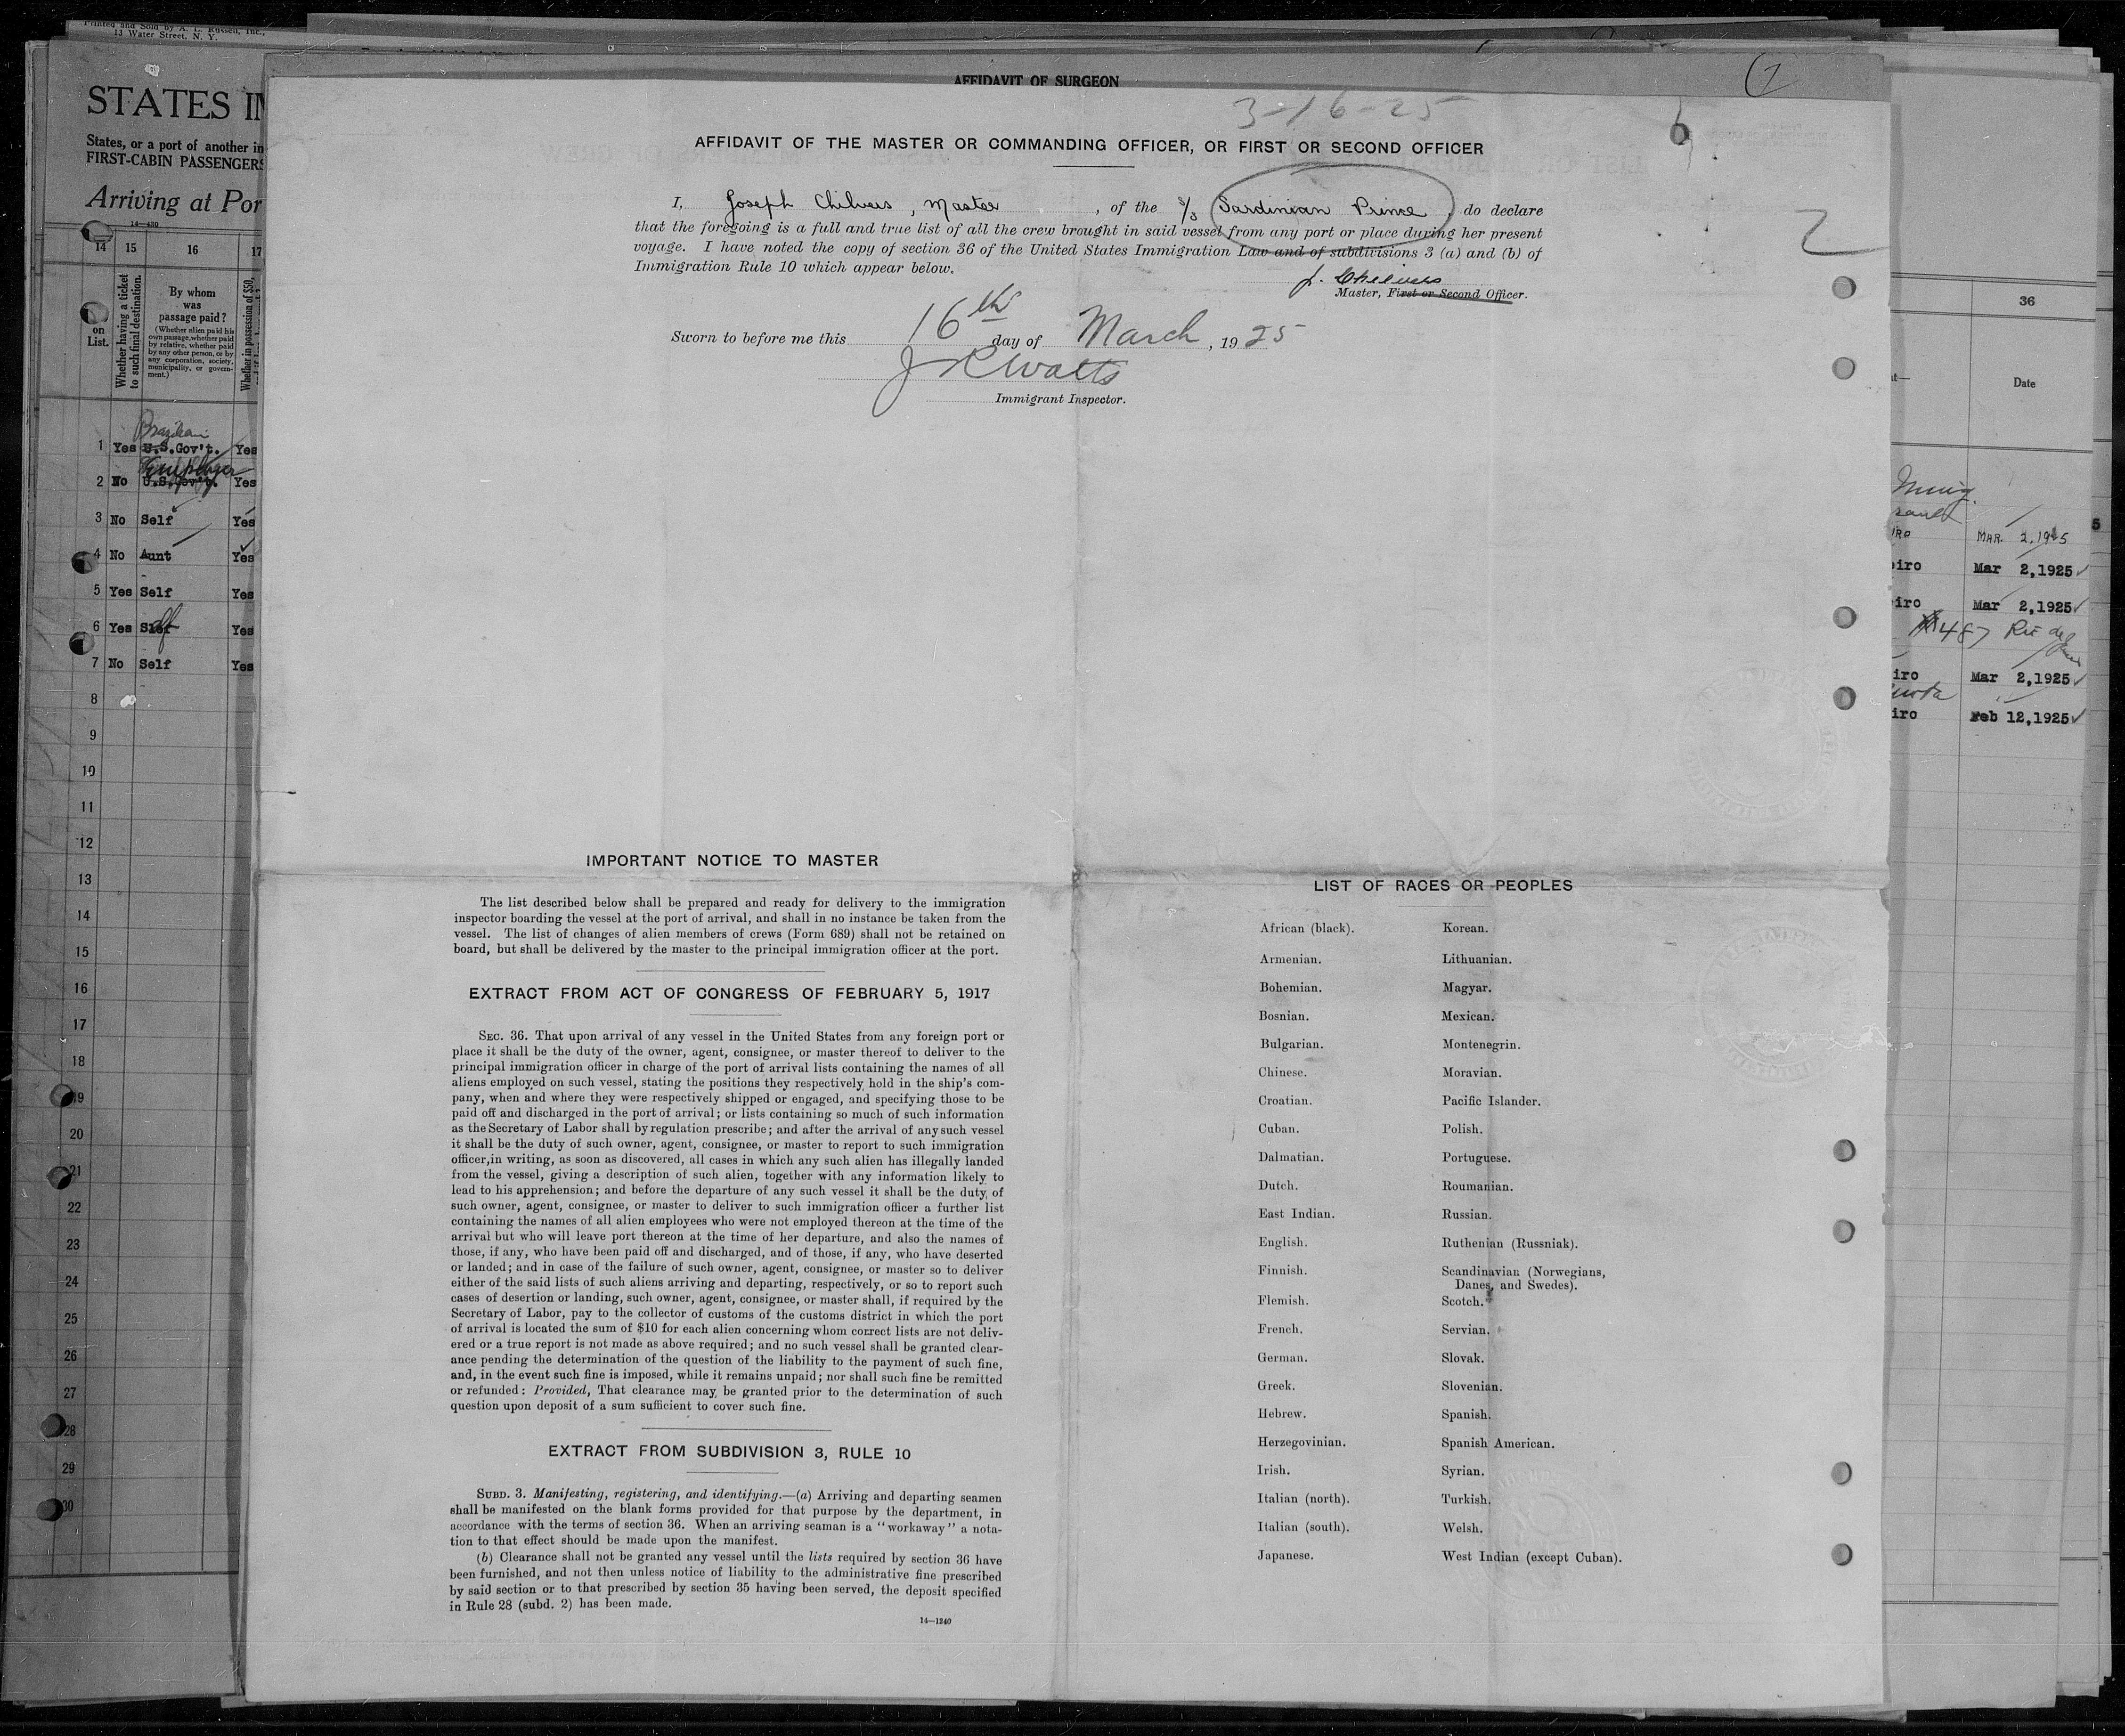 Printed and Sold by A. L. Russell, Inc.,
13 Water Street, N. Y.
STATES
States, or a port of another
FIRST-CABIN PASSENGERS
Arriving at Por
14—430
14 15 16 17
on
List.
Whether having a ticket
to such final destination.
By whom
was
passage paid?
(Whether alien paid his
own passage, whether paid
by relative, whether paid
by any other person, or by
any corporation, society,
municipality, or govern-
ment.)
Whether in possession of $50,
Brazilian
1 Yes U.S.Gov't. Yes
Employer
2 No U.S.Gov't. Yes
3 No Self Yes
4 No Aunt Yes
5 Yes Self Yes
6 Yes Self Yes
7 No Self Yes
8
9
10
11
12
13
14
15
16
17
18
19
20
21
22
23
24
25
26
27
28
29
30
AFFIDAVIT OF SURGEON
3-16-25
AFFIDAVIT OF THE MASTER OR COMMANDING OFFICER, OR FIRST OR SECOND OFFICER
I, Joseph Chilvers, Master, of the S/S Sardinian Prince, do declare
that the foregoing is a full and true list of all the crew brought in said vessel from any port or place during her present
voyage. I have noted the copy of section 36 of the United States Immigration Law and of subdivisions 3 (a) and (b) of
Immigration Rule 10 which appear below.
J. Chilvers
Master, First or Second Officer.
Sworn to before me this 16th day of March, 1925
J R Watts
Immigrant Inspector.
2
IMPORTANT NOTICE TO MASTER
The list described below shall be prepared and ready for delivery to the immigration
inspector boarding the vessel at the port of arrival, and shall in no instance be taken from the
vessel. The list of changes of alien members of crews (Form 689) shall not be retained on
board, but shall be delivered by the master to the principal immigration officer at the port.
EXTRACT FROM ACT OF CONGRESS OF FEBRUARY 5, 1917
SEC. 36. That upon arrival of any vessel in the United States from any foreign port or
place it shall be the duty of the owner, agent, consignee, or master thereof to deliver to the
principal immigration officer in charge of the port of arrival lists containing the names of all
aliens employed on such vessel, stating the positions they respectively hold in the ship's com-
pany, when and where they were respectively shipped or engaged, and specifying those to be
paid off and discharged in the port of arrival; or lists containing so much of such information
as the Secretary of Labor shall by regulation prescribe; and after the arrival of any such vessel
it shall be the duty of such owner, agent, consignee, or master to report to such immigration
officer, in writing, as soon as discovered, all cases in which any such alien has illegally landed
from the vessel, giving a description of such alien, together with any information likely to
lead to his apprehension; and before the departure of any such vessel it shall be the duty of
such owner, agent, consignee, or master to deliver to such immigration officer a further list
containing the names of all alien employees who were not employed thereon at the time of the
arrival but who will leave port thereon at the time of her departure, and also the names of
those, if any, who have been paid off and discharged, and of those, if any, who have deserted
or landed; and in case of the failure of such owner, agent, consignee, or master so to deliver
either of the said lists of such aliens arriving and departing, respectively, or so to report such
cases of desertion or landing, such owner, agent, consignee, or master shall, if required by the
Secretary of Labor, pay to the collector of customs of the customs district in which the port
of arrival is located the sum of $10 for each alien concerning whom correct lists are not deliv-
ered or a true report is not made as above required; and no such vessel shall be granted clear-
ance pending the determination of the question of the liability to the payment of such fine,
and, in the event such fine is imposed, while it remains unpaid; nor shall such fine be remitted
or refunded: Provided, That clearance may be granted prior to the determination of such
question upon deposit of a sum sufficient to cover such fine.
EXTRACT FROM SUBDIVISION 3, RULE 10
SUBD. 3. Manifesting, registering, and identifying.—(a) Arriving and departing seamen
shall be manifested on the blank forms provided for that purpose by the department, in
accordance with the terms of section 36. When an arriving seaman is a "workaway" a nota-
tion to that effect should be made upon the manifest.
(b) Clearance shall not be granted any vessel until the lists required by section 36 have
been furnished, and not then unless notice of liability to the administrative fine prescribed
by said section or to that prescribed by section 35 having been served, the deposit specified
in Rule 28 (subd. 2) has been made.
14—1240
LIST OF RACES OR PEOPLES
African (black). Korean.
Armenian. Lithuanian.
Bohemian. Magyar.
Bosnian. Mexican.
Bulgarian. Montenegrin.
Chinese. Moravian.
Croatian. Pacific Islander.
Cuban. Polish.
Dalmatian. Portuguese.
Dutch. Roumanian.
East Indian. Russian.
English. Ruthenian (Russniak).
Finnish. Scandinavian (Norwegians,
Danes, and Swedes).
Flemish. Scotch.
French. Servian.
German. Slovak.
Greek. Slovenian.
Hebrew. Spanish.
Herzegovinian. Spanish American.
Irish. Syrian.
Italian (north). Turkish.
Italian (south). Welsh.
Japanese. West Indian (except Cuban).
36
Date
MAR. 2, 1925
eiro Mar 2,1925
eiro Mar 2,1925
487 Rio de
iro Mar 2,1925
iro Feb 12,1925
5